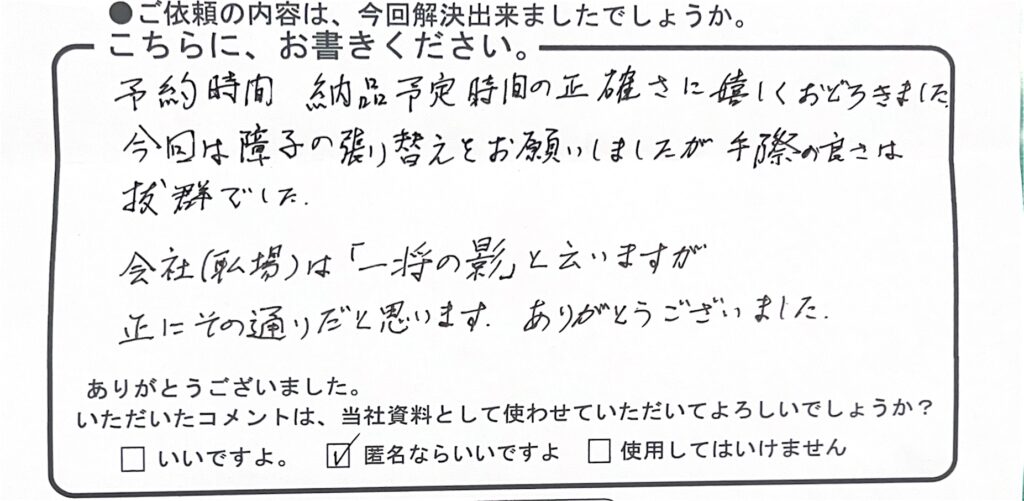 ●ご依頼の内容は、今回解決出来ましたでしょうか。
こちらに、お書きください。
予約時間 納品予定時間の正確さに嬉しくおどろきました.
今回は障子の張り替えをお願いしましたが手際の良さは
抜群でした.
会社(転場)は「一将の影」と云いますが
正にその通りだと思います. ありがとうございました.
ありがとうございました。
いただいたコメントは、当社資料として使わせていただいてよろしいでしょうか?
□ いいですよ。 ☑ 匿名ならいいですよ □ 使用してはいけません